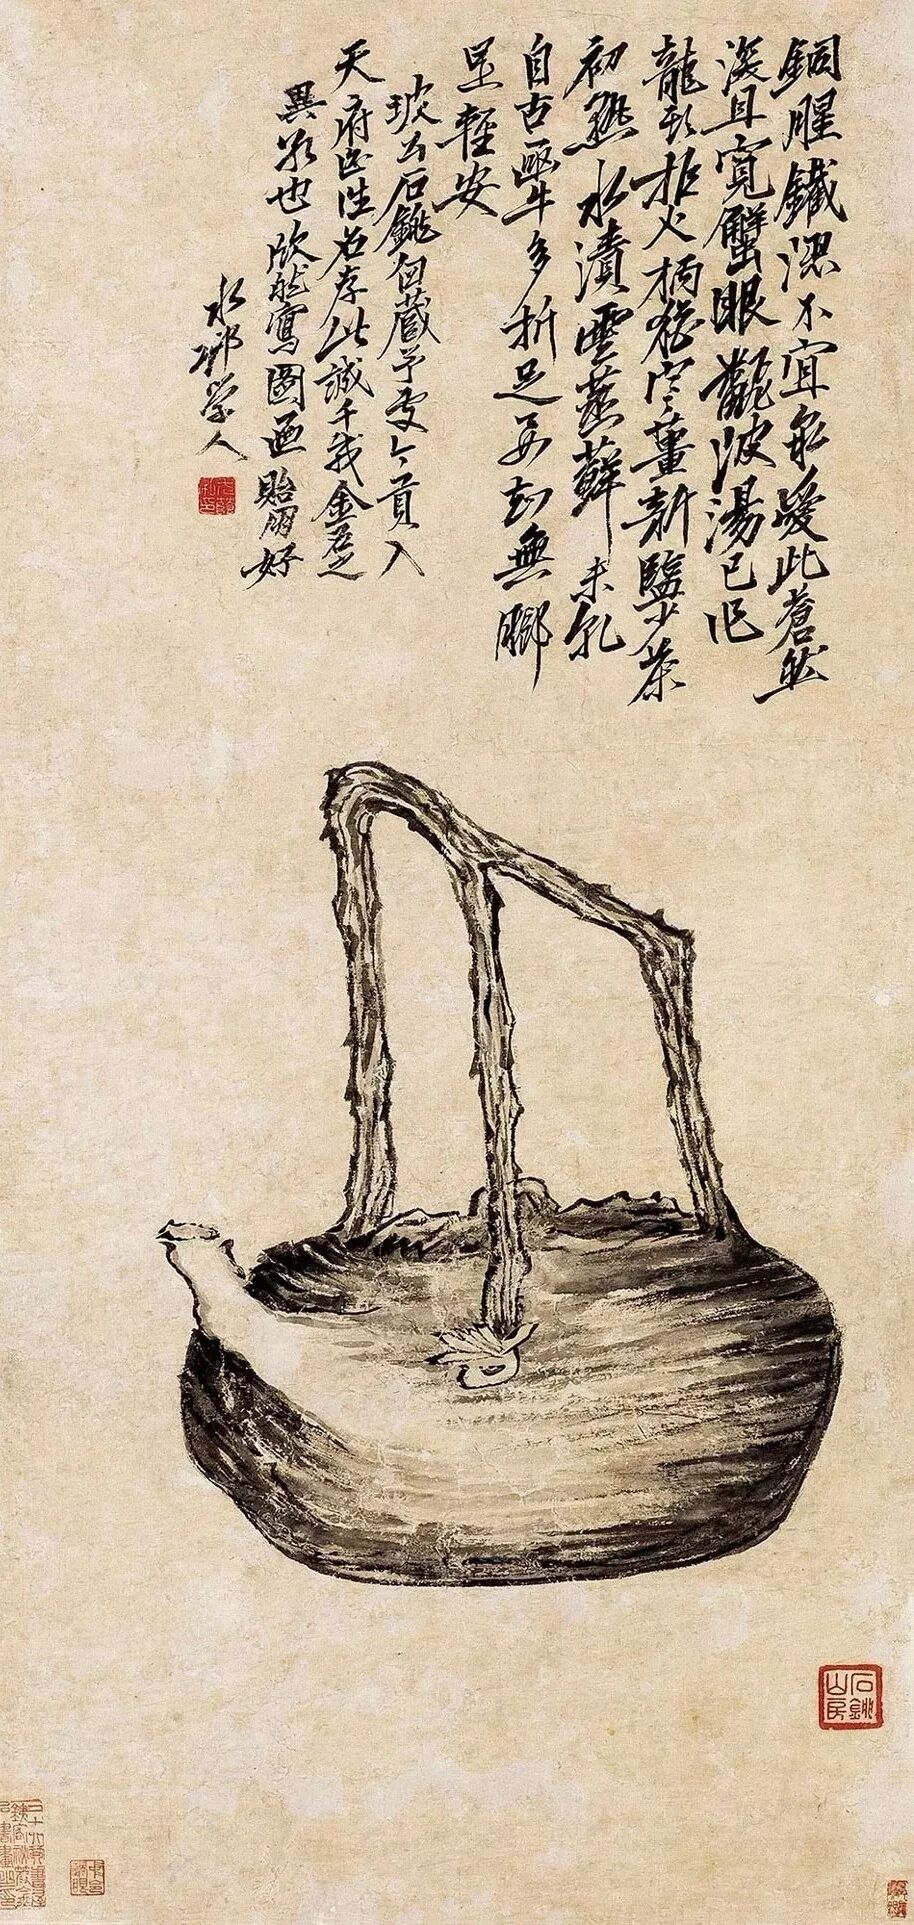 銅腥鐵澀不宜泉愛此蒼然
深且寬蟹眼飜波湯已作
龍頭拒火柄猶寒薑新鹽少茶
初熟水漬雲蒸蘚未乾
自古函牛多折足要知無腳
是輕安
坡公石銚向藏予處今貢入
天府姓名存此誠千載金石之
異數也欣然寫圖貽好
水邨學人
石銚山房